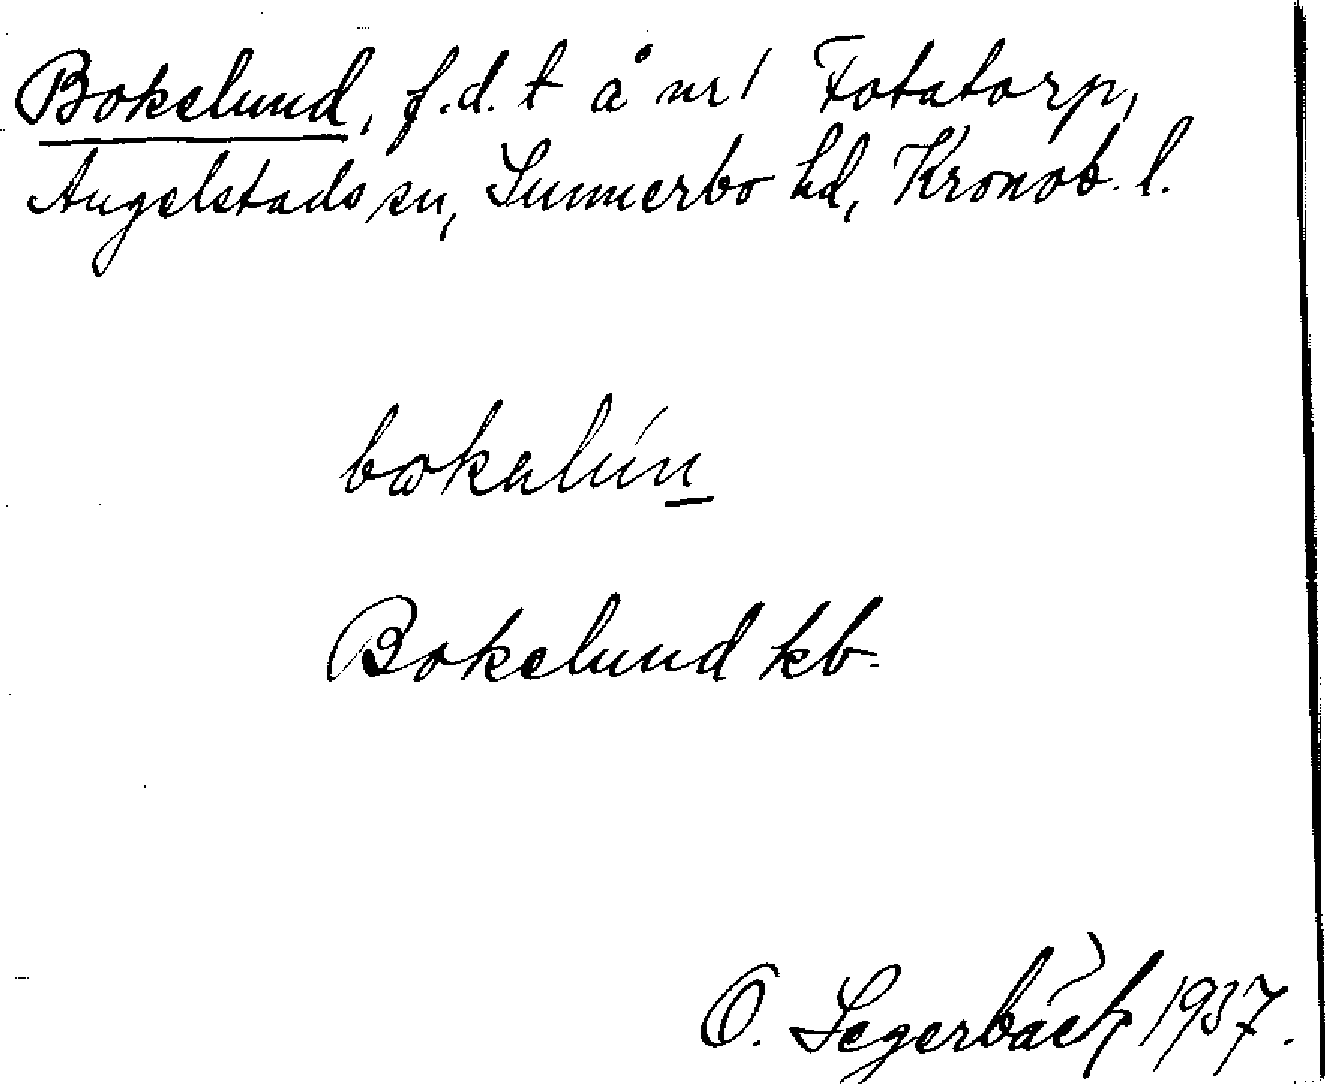 Bokelund, f.d. t å nr 1 Fotatorp,
Angelstads sn, Sunnerbo hd, Kronob. l.
Bokelund kb.
O. Segerbäck 1937.